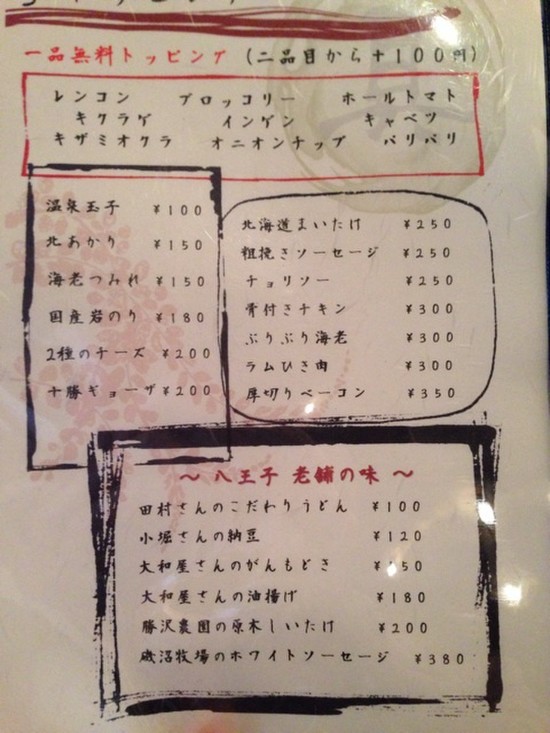 一品無料トッピング (二品目から+100円)
レンコン ブロッコリー ホールトマト
キクラゲ インゲン キャベツ
キザミオクラ オニオンナップ パリパリ
温泉玉子 ¥100
北あかり ¥150
海老つみれ ¥150
国産岩のり ¥180
2種のチーズ ¥200
十勝ギョーザ ¥200
北海道まいたけ ¥250
粗挽きソーセージ ¥250
チョリソー ¥250
骨付きチキン ¥300
ぷりぷり海老 ¥300
ラムひき肉 ¥300
厚切りベーコン ¥350
〜 八王子 老舗の味 〜
田村さんのこだわりうどん ¥100
小堀さんの納豆 ¥120
大和屋さんのがんもどき ¥ 50
大和屋さんの油揚げ ¥180
勝沢農園の原木しいたけ ¥200
磯沼牧場のホワイトソーセージ ¥380